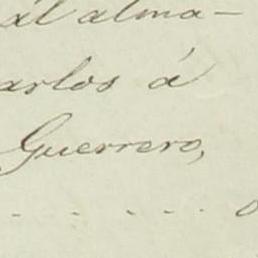 ál alma-
arlos á
Guerrero,